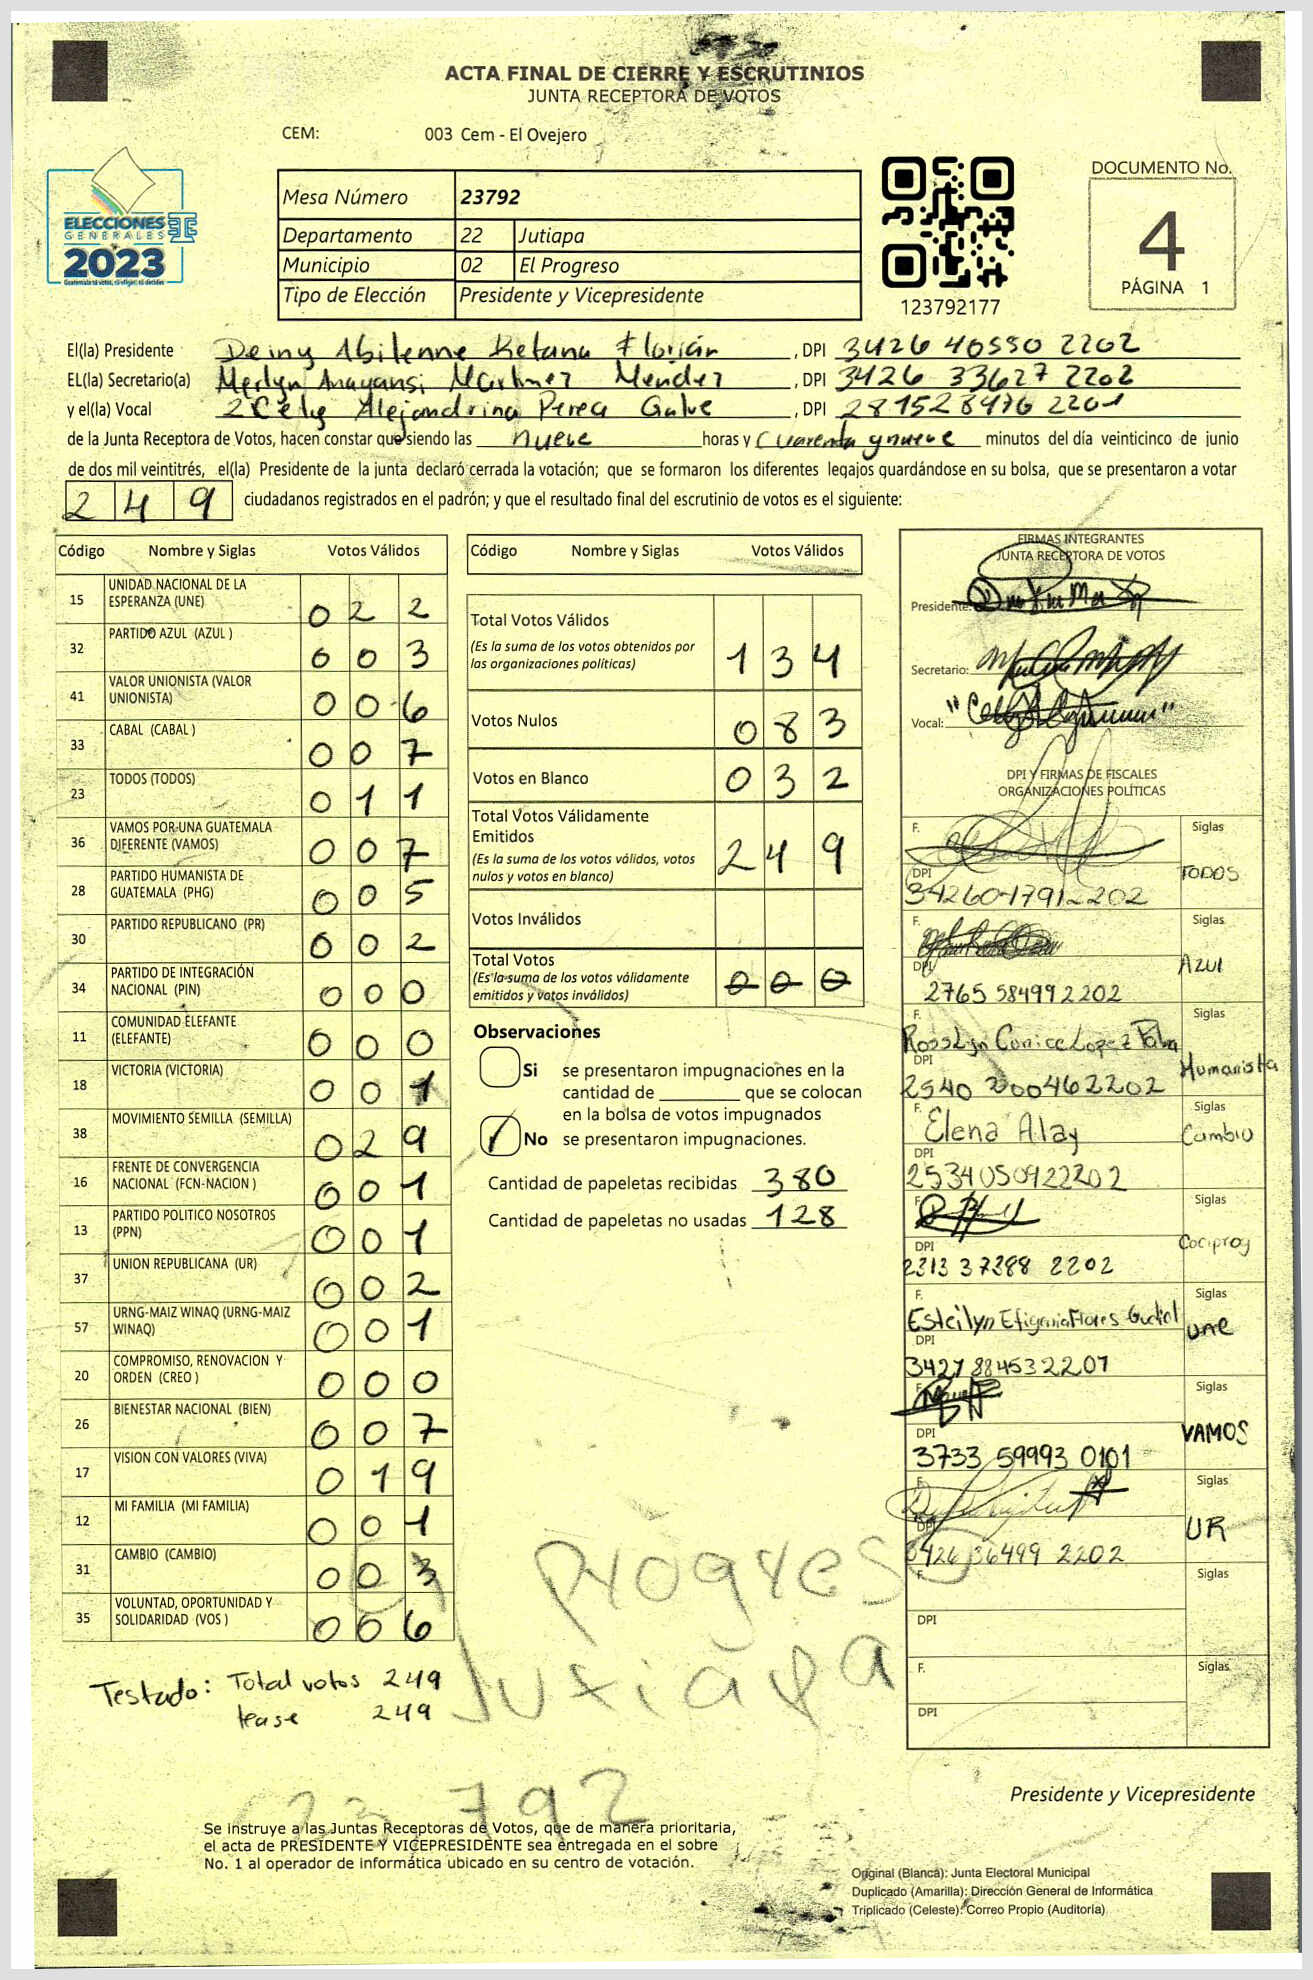 ACTA FINAL DE CIERRE Y ESCRUTINIOS
JUNTA RECEPTORA DE VOTOS
CEM: 003 Cem - El Ovejero
ELECCIONES
GENERALES
2023
Mesa Número 23792
Departamento 22 Jutiapa
Municipio 02 El Progreso
Tipo de Elección Presidente y Vicepresidente
123792177
DOCUMENTO No.
4
PÁGINA 1
El(la) Presidente Deiny Abilenne Retana Florián, DPI 3426 40550 2202
EL(la) Secretario(a) Merlyn Anayansi Martinez Mendez, DPI 3426 33627 2202
y el(la) Vocal Celys Alejandrina Perea Galve, DPI 281528476 2201
de la Junta Receptora de Votos, hacen constar que siendo las nueve horas y cuarenta y nueve minutos del día veinticinco de junio
de dos mil veintitrés, el(la) Presidente de la junta declaró cerrada la votación; que se formaron los diferentes legajos guardándose en su bolsa, que se presentaron a votar
249 ciudadanos registrados en el padrón; y que el resultado final del escrutinio de votos es el siguiente:
Código Nombre y Siglas Votos Válidos
15 UNIDAD NACIONAL DE LA ESPERANZA (UNE) 022
32 PARTIDO AZUL (AZUL ) 003
41 VALOR UNIONISTA (VALOR UNIONISTA) 006
33 CABAL (CABAL ) 007
23 TODOS (TODOS) 011
36 VAMOS POR UNA GUATEMALA DIFERENTE (VAMOS) 007
28 PARTIDO HUMANISTA DE GUATEMALA (PHG) 005
30 PARTIDO REPUBLICANO (PR) 002
34 PARTIDO DE INTEGRACIÓN NACIONAL (PIN) 000
11 COMUNIDAD ELEFANTE (ELEFANTE) 000
18 VICTORIA (VICTORIA) 001
38 MOVIMIENTO SEMILLA (SEMILLA) 029
16 FRENTE DE CONVERGENCIA NACIONAL (FCN-NACION ) 001
13 PARTIDO POLITICO NOSOTROS (PPN) 001
37 UNION REPUBLICANA (UR) 002
57 URNG-MAIZ WINAQ (URNG-MAIZ WINAQ) 001
20 COMPROMISO, RENOVACION Y ORDEN (CREO ) 000
26 BIENESTAR NACIONAL (BIEN) 007
17 VISION CON VALORES (VIVA) 019
12 MI FAMILIA (MI FAMILIA) 001
31 CAMBIO (CAMBIO) 003
35 VOLUNTAD, OPORTUNIDAD Y SOLIDARIDAD (VOS ) 006
Testado: Total votos 249
lease 249
Código Nombre y Siglas Votos Válidos
Total Votos Válidos 134
(Es la suma de los votos obtenidos por
las organizaciones políticas)
Votos Nulos 083
Votos en Blanco 032
Total Votos Válidamente
Emitidos 249
(Es la suma de los votos válidos, votos
nulos y votos en blanco)
Votos Inválidos
Total Votos 000
(Es la suma de los votos válidamente
emitidos y votos inválidos)
Observaciones
Si se presentaron impugnaciones en la
cantidad de ________ que se colocan
en la bolsa de votos impugnados
No se presentaron impugnaciones.
Cantidad de papeletas recibidas 380
Cantidad de papeletas no usadas 128
FIRMAS INTEGRANTES
JUNTA RECEPTORA DE VOTOS
Presidente:
Secretario:
Vocal:
DPI Y FIRMAS DE FISCALES
ORGANIZACIONES POLÍTICAS
F. Siglas
DPI TODOS
342601791 2202
F. Siglas
DPI AZUL
2765 584992202
F. Siglas
Rosslyn Conice Lopez
DPI Humanista
2540 200462202
F. Siglas
Elena Alay Cambio
DPI
2534050922202
F. Siglas
DPI
2313 37388 2202
F. Siglas
Esteilyn Efigenia Flores Gudiel une
DPI
3427884532207
F. Siglas
DPI VAMOS
3733 59993 0101
F. Siglas
DPI UR
3426 36499 2202
F. Siglas
DPI
F. Siglas
DPI
el progreso
Jutiapa
23,792
Presidente y Vicepresidente
Se instruye a las Juntas Receptoras de Votos, que de manera prioritaria,
el acta de PRESIDENTE Y VICEPRESIDENTE sea entregada en el sobre
No. 1 al operador de informática ubicado en su centro de votación.
Original (Blanca): Junta Electoral Municipal
Duplicado (Amarilla): Dirección General de Informática
Triplicado (Celeste): Correo Propio (Auditoría)